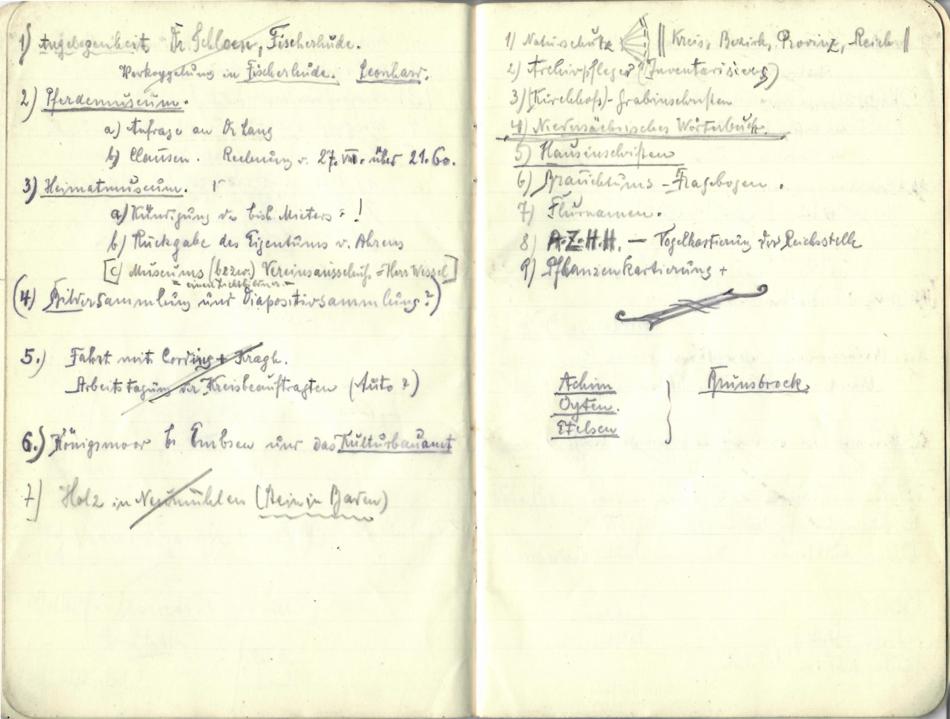 1) Angelegenheit Dr. Schloen, Fischerhude.
Verkoppelung in Fischerhude. Leonhard.
2) Pferdemuseum.
a) Anfrage an Dr Lang
b) Clausen. Rechnung v. 27. VII. über 21.60.
3) Heimatmuseum.
a) Kündigung der bish. Mieter !
b) Rückgabe des Eigentums v. Ahrens
[c) Museums (bezw.) Vereinsausschuß - Herr Wessel]
(4) Bildersammlung und Diapositivsammlung?)
5.) Fahrt mit Cording + Kragh.
Arbeitstagung der Kreisbeauftragten (Auto?)
6.) Königsmoor bei Embsen und das Kulturbauamt
7) Holz in Neumühlen (Rein in Baden)
1) Naturschutz || Kreis, Bezirk, Provinz, Reich ||
2) Archivpfleger (Inventarisierg)
3) (Kirchhofs)-Grabinschriften
4) Niedersächsisches Wörterbuch.
5) Hausinschriften
6) Brauchtums-Fragebogen.
7) Flurnamen.
8) A.Z.H.H. — Vogelkartierung der Reichsstelle
9) Pflanzenkartierung +
Achim
Oyten.
Etelsen
Grunsbrock.